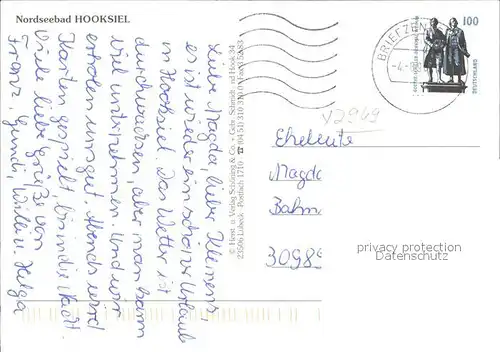 Nordseebad HOOKSIEL
Liebe Magda, lieber Klemens,
es ist wieder ein schöner Urlaub
in Hooksiel. Das Wetter ist
durchwachsen, aber man kann
viel unternehmen und wir
erholen uns gut. Abends wird
Karten gespielt, bis in die Nacht.
Viele liebe Grüße von
Franz, Gundi, Willi u. Helga
© Herst. u. Verlag Schöning & Co. · Gebr. Schmidt
23506 Lübeck · Postfach 1710 · ☎ (04 51) 3 10 31
BRIEFZEN
100
DEUTSCHLAND
V2949
Eheleute
Magda
Bahn
3098
privacy protection
Datenschutz